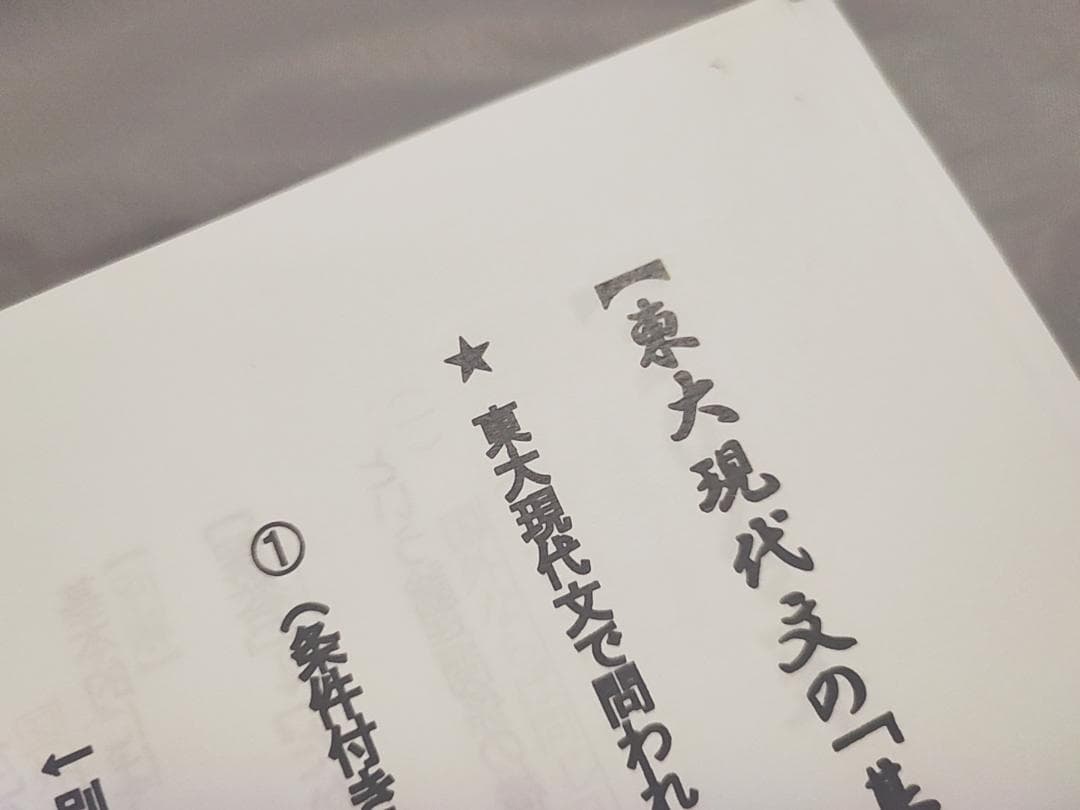 【東大現代文の「基
★ 東大現代文で問われ
① (条件付き
↓